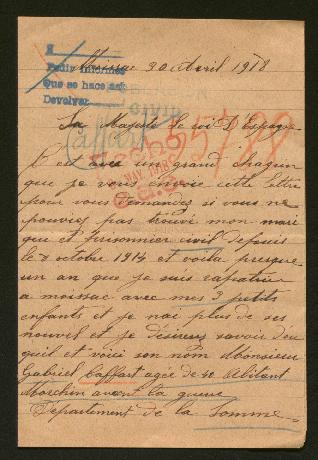 Moissac 30 Avril 1918
Pedir informes
Que se hace así
Devolver
CIVIL
55700
MAY. 1918
Sa Majesté le roi D'Espagne
C'est avec un grand chagrin
que je vous envoie cette lettre
pour vous demandez si vous ne
pouviez pas trouvé mon mari
qui est prisonnier civil depuis
le 8 octobre 1914 et voila presque
un an que je suis rapatrier
a moissac avec mes 3 petits
enfants et je nai plus de ses
nouvel et je désirerez savoir d'eu
quil et voici son nom Monsieur
Gabriel Caffart agée de 40 Abitant
Morchin avant la guerre
Département de la Somme